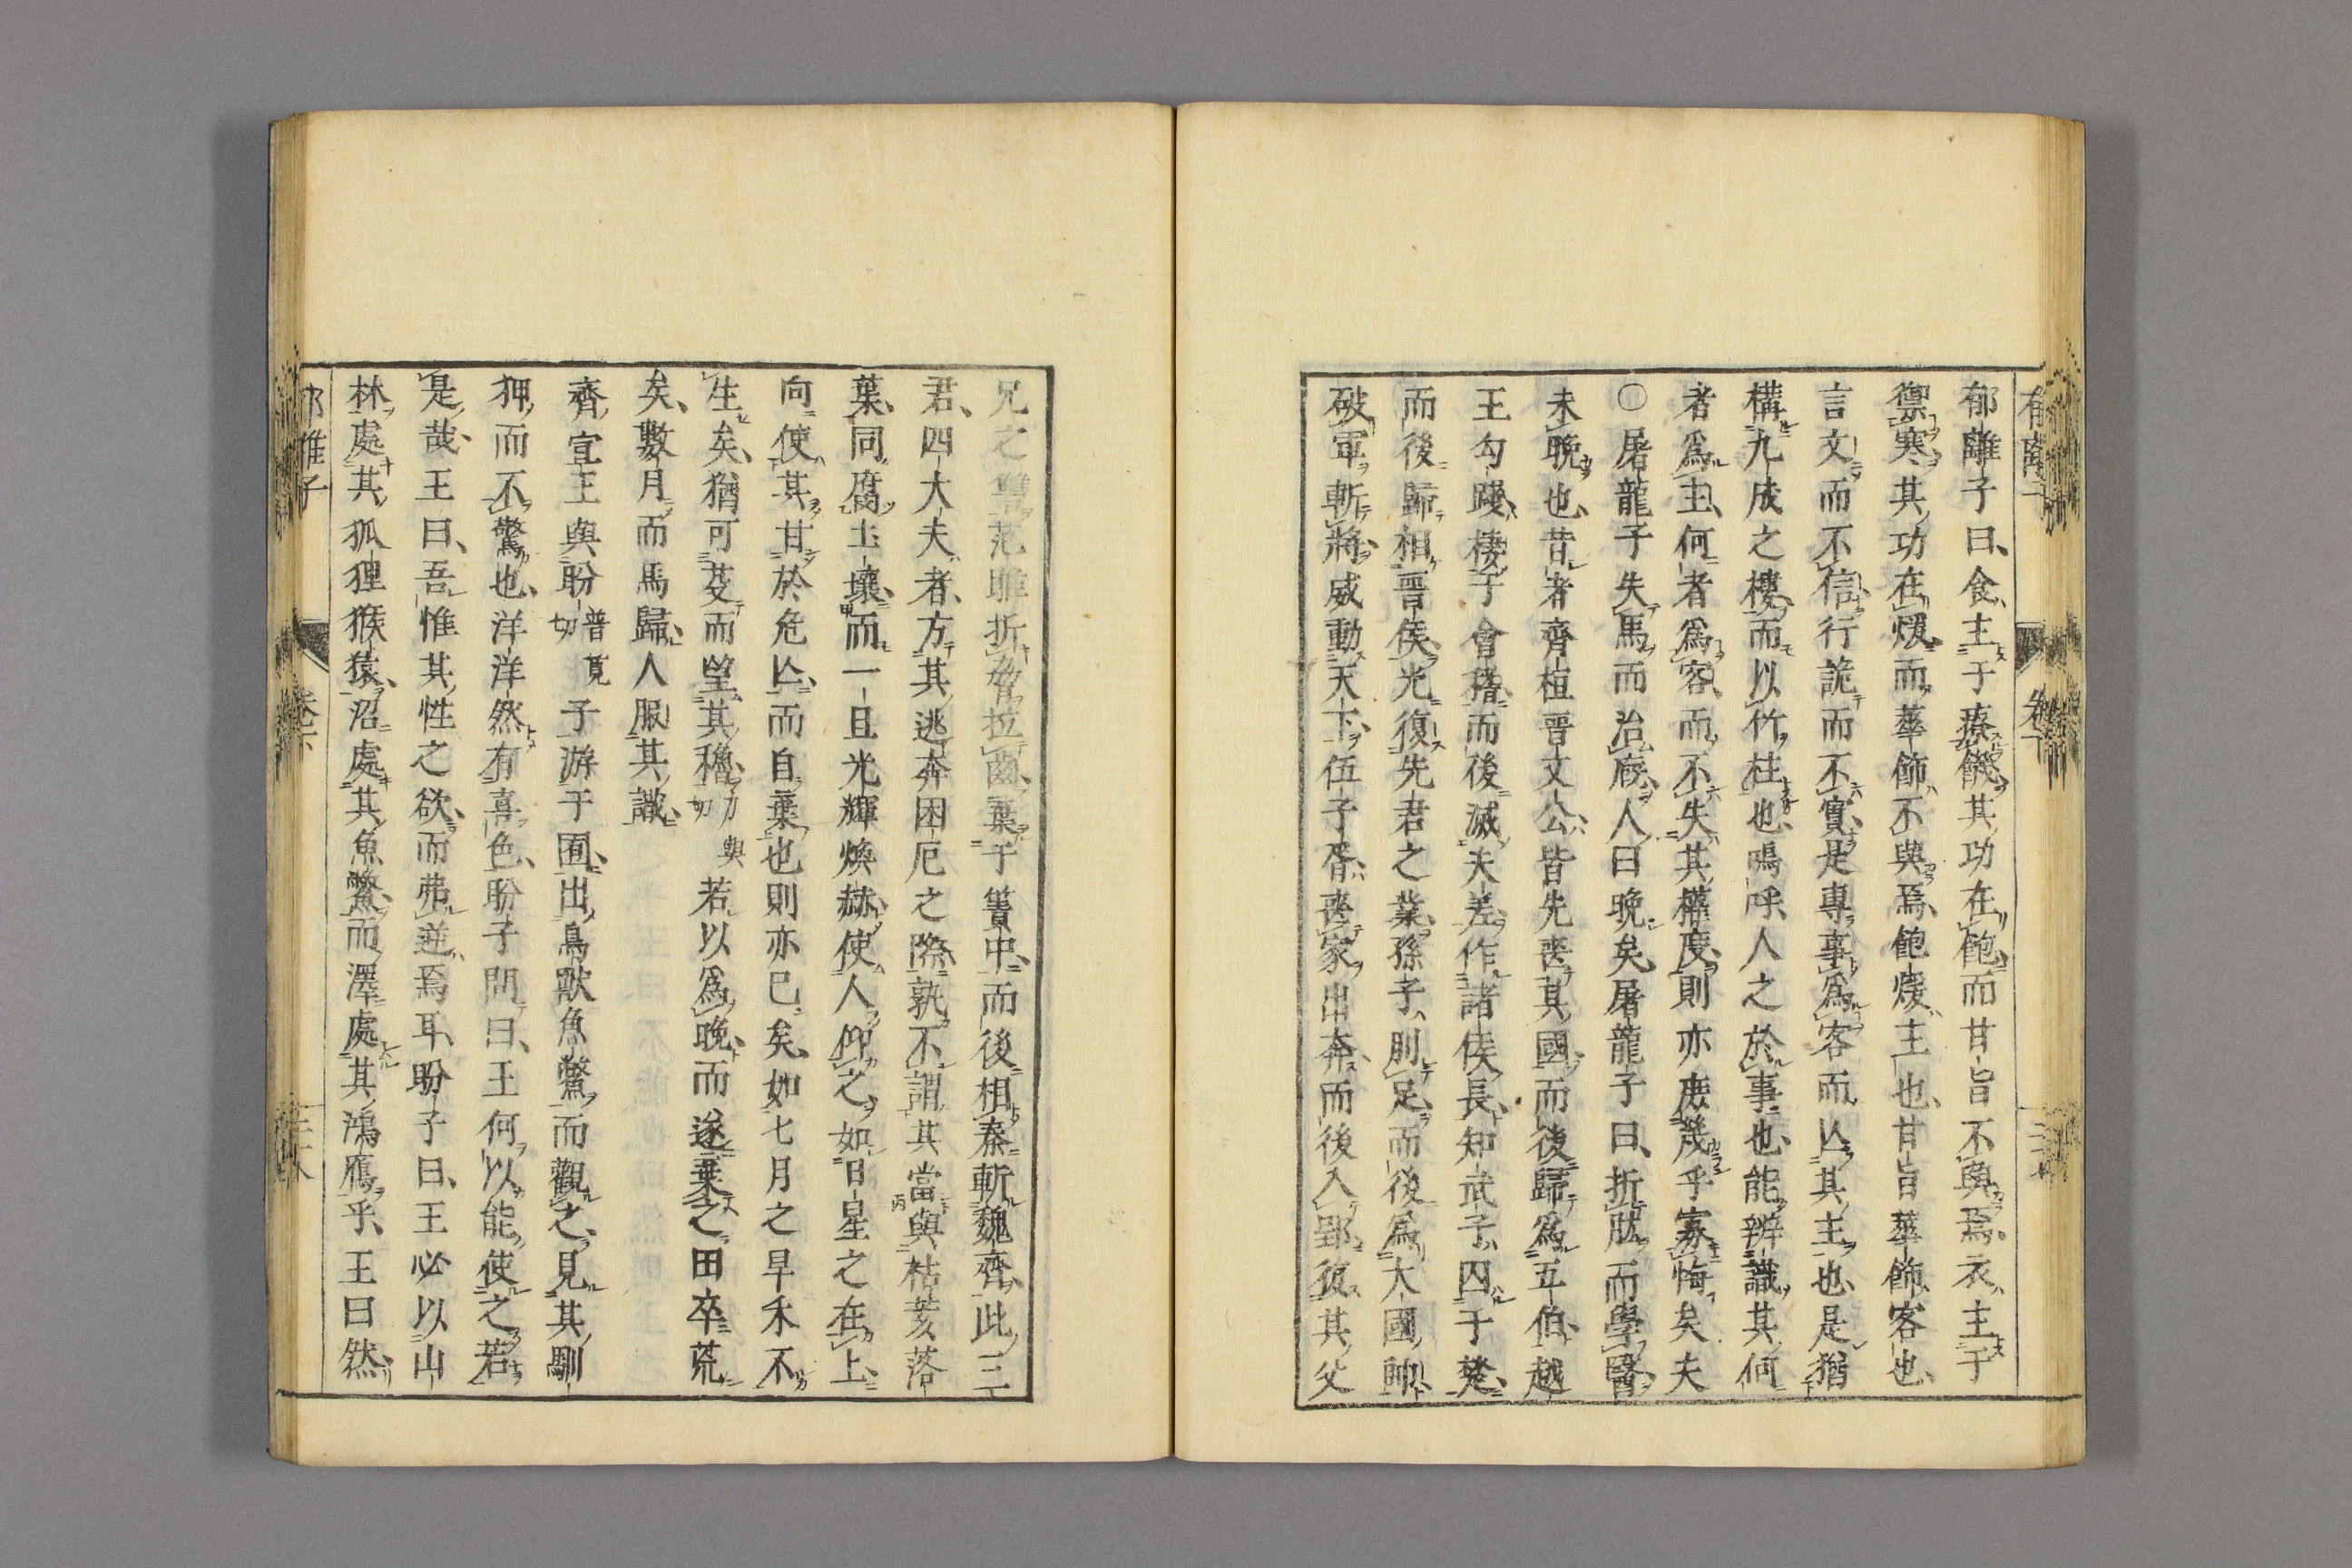 郁離子曰食主于療饑其功在飽而甘旨不與焉衣主于
禦寒其功在煖而華飾不與焉飽煖主也甘旨華飾客也
言文而不信行詭而不實是專事爲客而亾其主也是猶
構九成之樓而以竹柱也嗚呼人之於事也能辨識其何
者爲主何者爲客而不失其權度則亦庶幾乎寡悔矣夫
〇屠龍子失馬而治廐人曰晚矣屠龍子曰折肱而學醫
未晚也昔者齊桓晋文公皆先喪其國而後歸爲五伯越
王勾踐棲于會稽而後滅夫差作諸侯長知武子囚于楚
而後歸相晋侯光復先君之業孫子刖足而後爲大國師
破軍斬將威動天下伍子胥喪家出奔而後入郢復其父
兄之讐范雎折脅拉齒棄于簀中而後相秦斬魏齊此三
君四大夫者方其逃奔困厄之際孰不謂其當與枯荄落
葉同腐土壤而一旦光輝煥赫使人仰之如日星之在上
向使其甘於危亾而自棄也則亦已矣如七月之旱禾不
生矣猶可芟而望其穭力與切若以爲晚而遂棄之田卒荒
矣數月而馬歸人服其識
齊宣王與盼普莧切子游于囿出鳥獸魚鱉而觀之見其馴
狎而不驚也洋洋然有喜色盼子問曰王何以能使之若
是哉王曰吾惟其性之欲而弗逆焉耳盼子曰王必以山
林處其狐狸猴猿沼處其魚鱉而澤處其鴻鴈乎王曰然